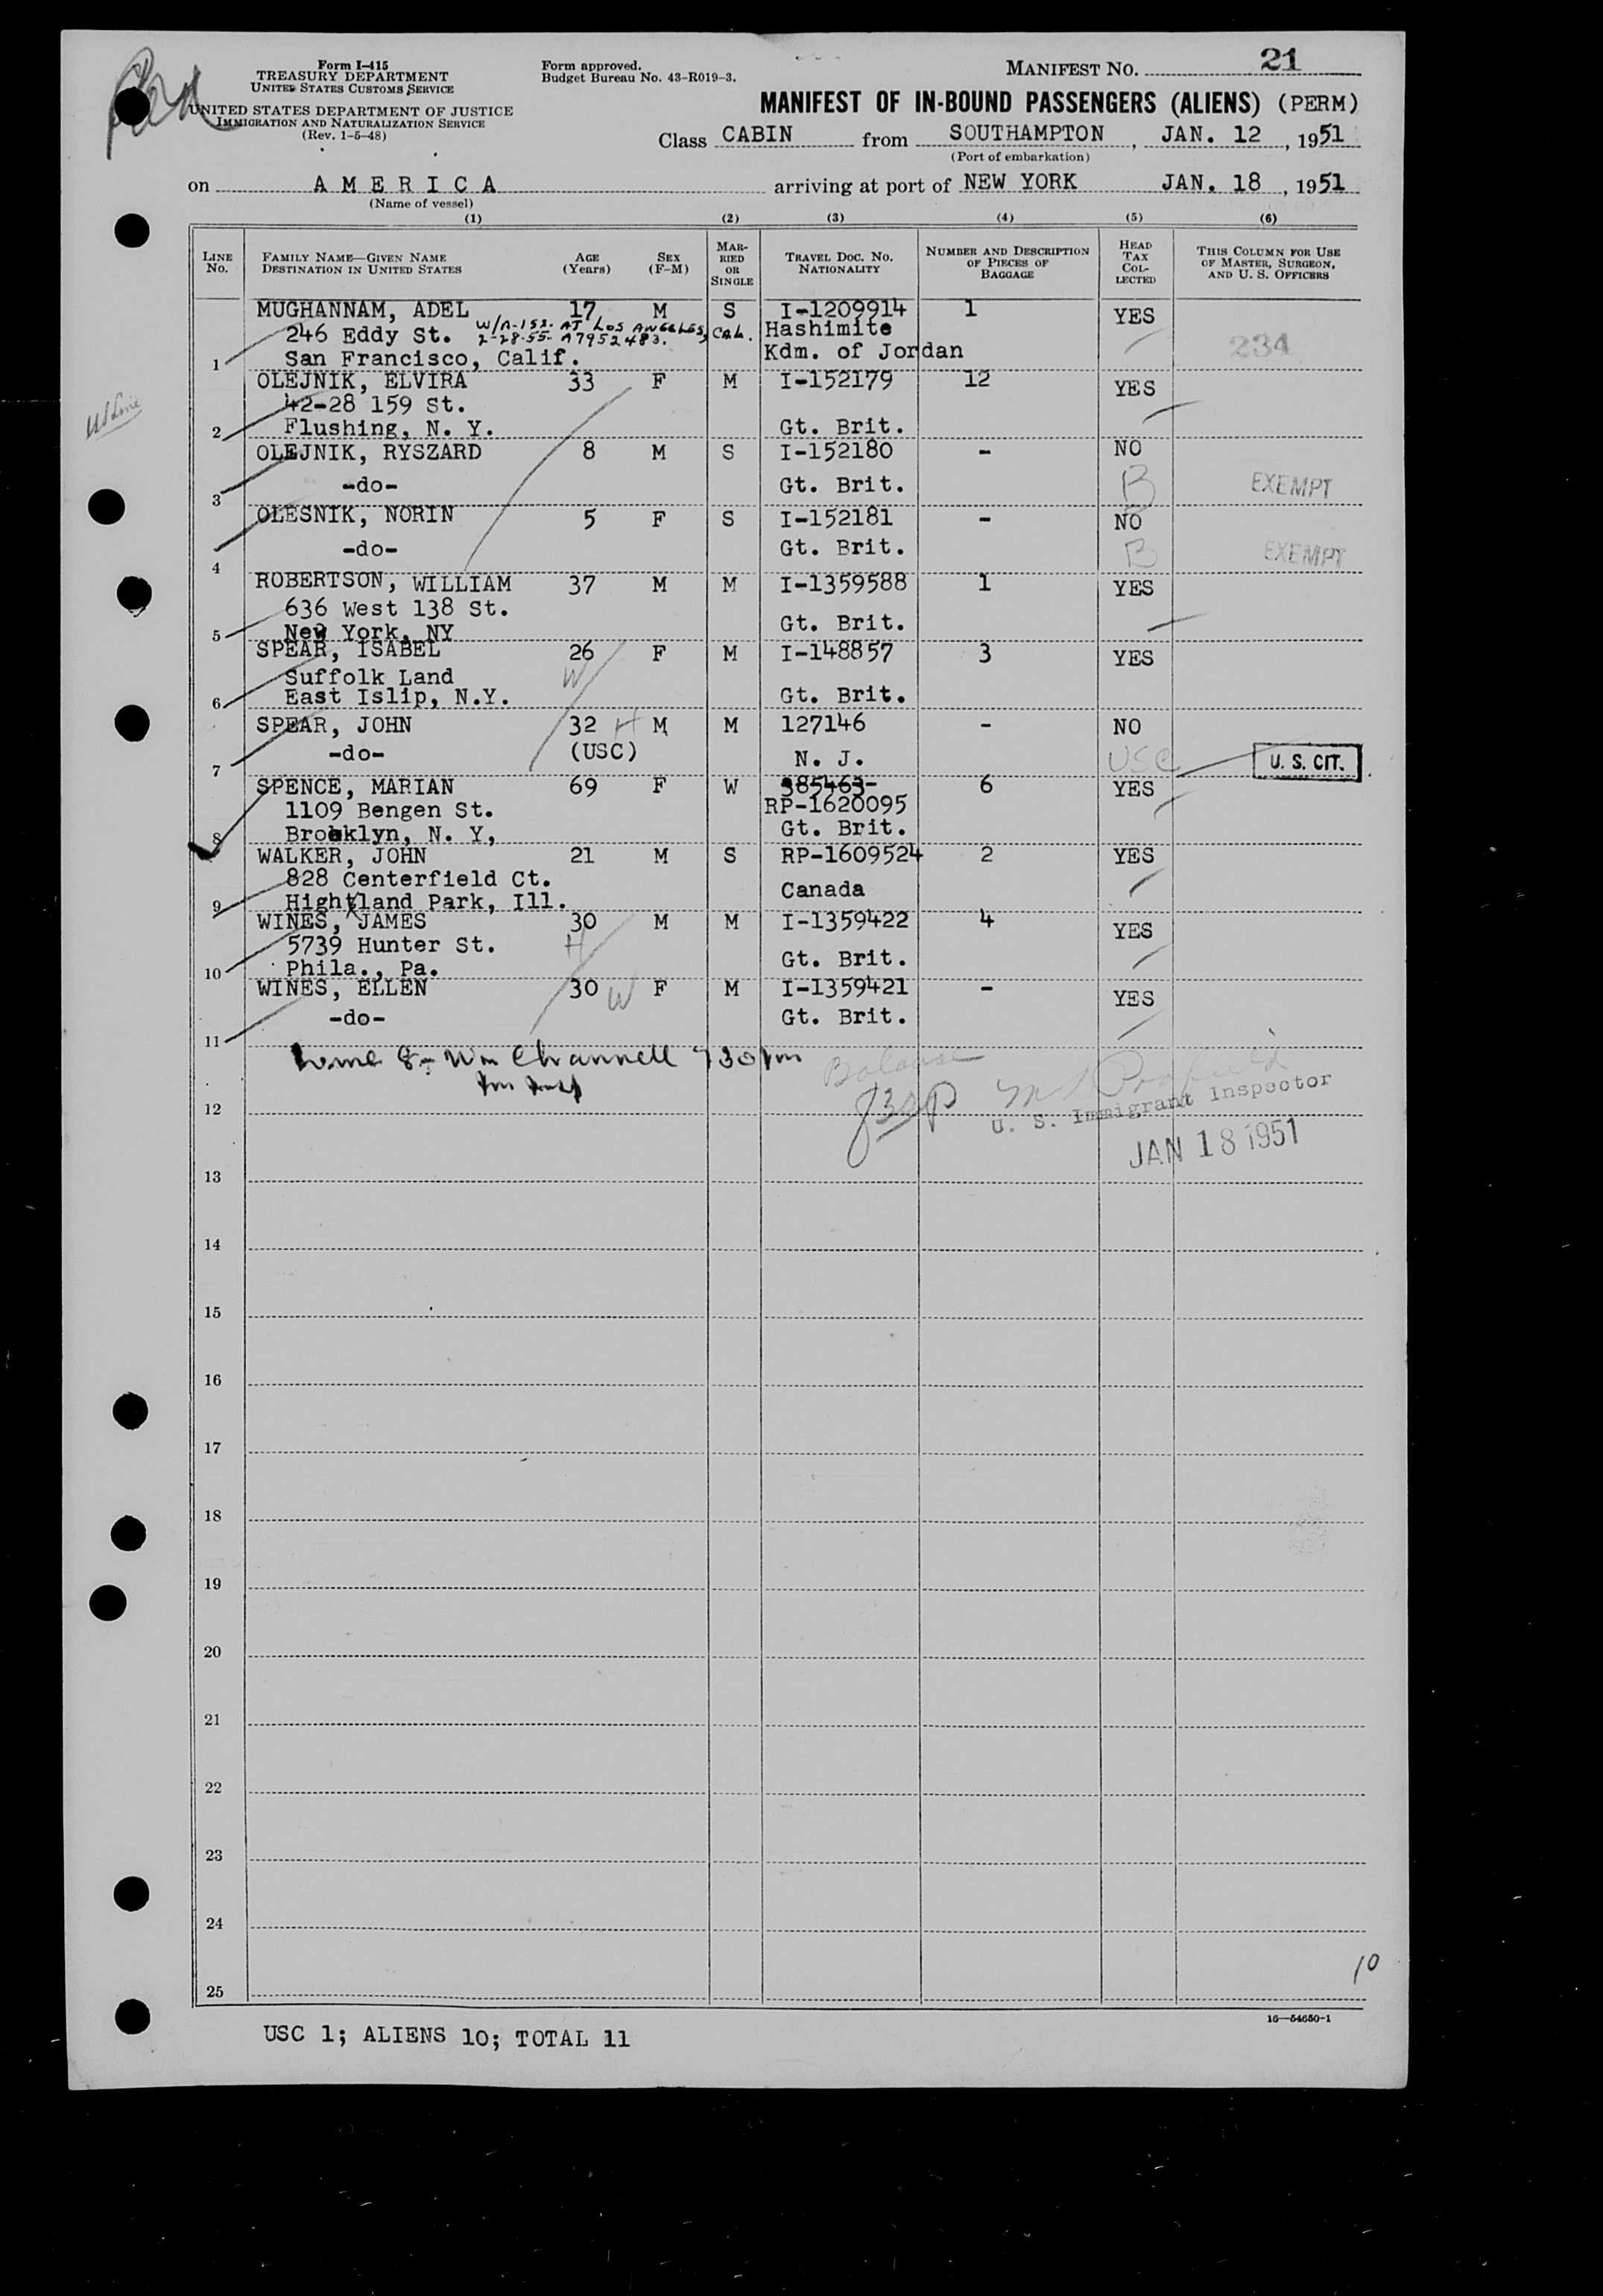 Form I-415
TREASURY DEPARTMENT
UNITED STATES CUSTOMS SERVICE
UNITED STATES DEPARTMENT OF JUSTICE
IMMIGRATION AND NATURALIZATION SERVICE
(Rev. 1-5-48)
Form approved.
Budget Bureau No. 43-R019-3.
MANIFEST NO. 21
MANIFEST OF IN-BOUND PASSENGERS (ALIENS) (PERM)
Class CABIN from SOUTHAMPTON, JAN. 12, 1951
(Port of embarkation)
on AMERICA arriving at port of NEW YORK JAN. 18, 1951
(Name of vessel)
(1) (2) (3) (4) (5) (6)
LINE No. FAMILY NAME—GIVEN NAME DESTINATION IN UNITED STATES AGE (Years) SEX (F-M) MARRIED OR SINGLE TRAVEL DOC. NO. NATIONALITY NUMBER AND DESCRIPTION OF PIECES OF BAGGAGE HEAD TAX COLLECTED THIS COLUMN FOR USE OF MASTER, SURGEON, AND U. S. OFFICERS
MUGHANNAM, ADEL 17 M S I-1209914 1 YES
246 Eddy St. W/A-153- AT LOS ANGELES, CAL. Hashimite 234
2-28-55- A7952483.
1 San Francisco, Calif. Kdm. of Jordan
OLEJNIK, ELVIRA 33 F M I-152179 12 YES
42-28 159 St.
2 Flushing, N. Y. Gt. Brit.
US Line
OLEJNIK, RYSZARD 8 M S I-152180 - NO
3 -do- Gt. Brit. B EXEMPT
OLESNIK, NORIN 5 F S I-152181 - NO
4 -do- Gt. Brit. B EXEMPT
ROBERTSON, WILLIAM 37 M M I-1359588 1 YES
636 West 138 St.
5 New York, NY Gt. Brit.
SPEAR, ISABEL 26 F M I-148857 3 YES
Suffolk Land W
6 East Islip, N.Y. Gt. Brit.
SPEAR, JOHN 32 H M M 127146 - NO
7 -do- (USC) N. J. USC U. S. CIT.
SPENCE, MARIAN 69 F W 385463- 6 YES
1109 Bengen St. RP-1620095
8 Brooklyn, N. Y, Gt. Brit.
WALKER, JOHN 21 M S RP-1609524 2 YES
828 Centerfield Ct. Canada
9 Highland Park, Ill.
WINES, JAMES 30 M M I-1359422 4 YES
5739 Hunter St. H
10 Phila., Pa. Gt. Brit.
WINES, ELLEN 30 W F M I-1359421 - YES
11 -do- Gt. Brit.
Line 8- Wm Channell 730pm
Balance
830p
U. S. Immigrant Inspector
JAN 18 1951
12
13
14
15
16
17
18
19
20
21
22
23
24
25
10
16—54650-1
USC 1; ALIENS 10; TOTAL 11